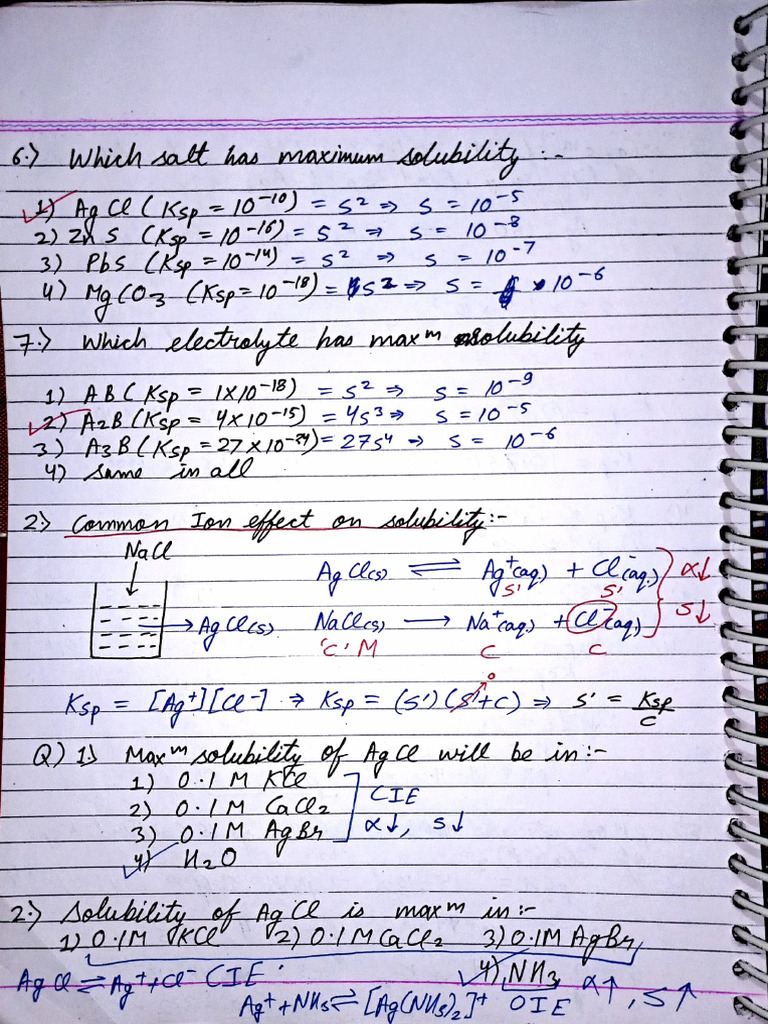 6.) Which salt has maximum solubility :-
1) AgCl (Ksp = 10⁻¹⁰) = s² ⇒ s = 10⁻⁵
2) ZnS (Ksp = 10⁻¹⁶) = s² ⇒ s = 10⁻⁸
3) PbS (Ksp = 10⁻¹⁴) = s² ⇒ s = 10⁻⁷
4) MgCO₃ (Ksp = 10⁻¹⁸) = s² ⇒ s = 10⁻⁶
7.) Which electrolyte has maxᵐ solubility
1) AB (Ksp = 1×10⁻¹⁸) = s² ⇒ s = 10⁻⁹
2) A₂B (Ksp = 4×10⁻¹⁵) = 4s³ ⇒ s = 10⁻⁵
3) A₃B (Ksp = 27×10⁻²⁴) = 27s⁴ ⇒ s = 10⁻⁶
4) same in all
2.) Common Ion effect on solubility:-
NaCl
AgCl(s) ⇌ Ag⁺(aq.) + Cl⁻(aq.) α↓
s' s' s↓
→AgCl(s) NaCl(s) ⟶ Na⁺(aq.) + Cl⁻(aq.)
'C' M C C
Ksp = [Ag⁺][Cl⁻] → Ksp = (s') (s'⁰+c) ⇒ s' = Ksp/C
Q) 1.) Maxᵐ solubility of AgCl will be in:-
1) 0.1 M KCl
2) 0.1 M CaCl₂ CIE
3) 0.1 M AgBr α↓, s↓
4) H₂O
2.) Solubility of AgCl is maxᵐ in:-
1) 0.1M KCl 2) 0.1M CaCl₂ 3) 0.1M AgBr
AgCl ⇌ Ag⁺ + Cl⁻ CIE 4) NH₃ α↑, s↑
Ag⁺ + NH₃ ⇌ [Ag(NH₃)₂]⁺ OIE